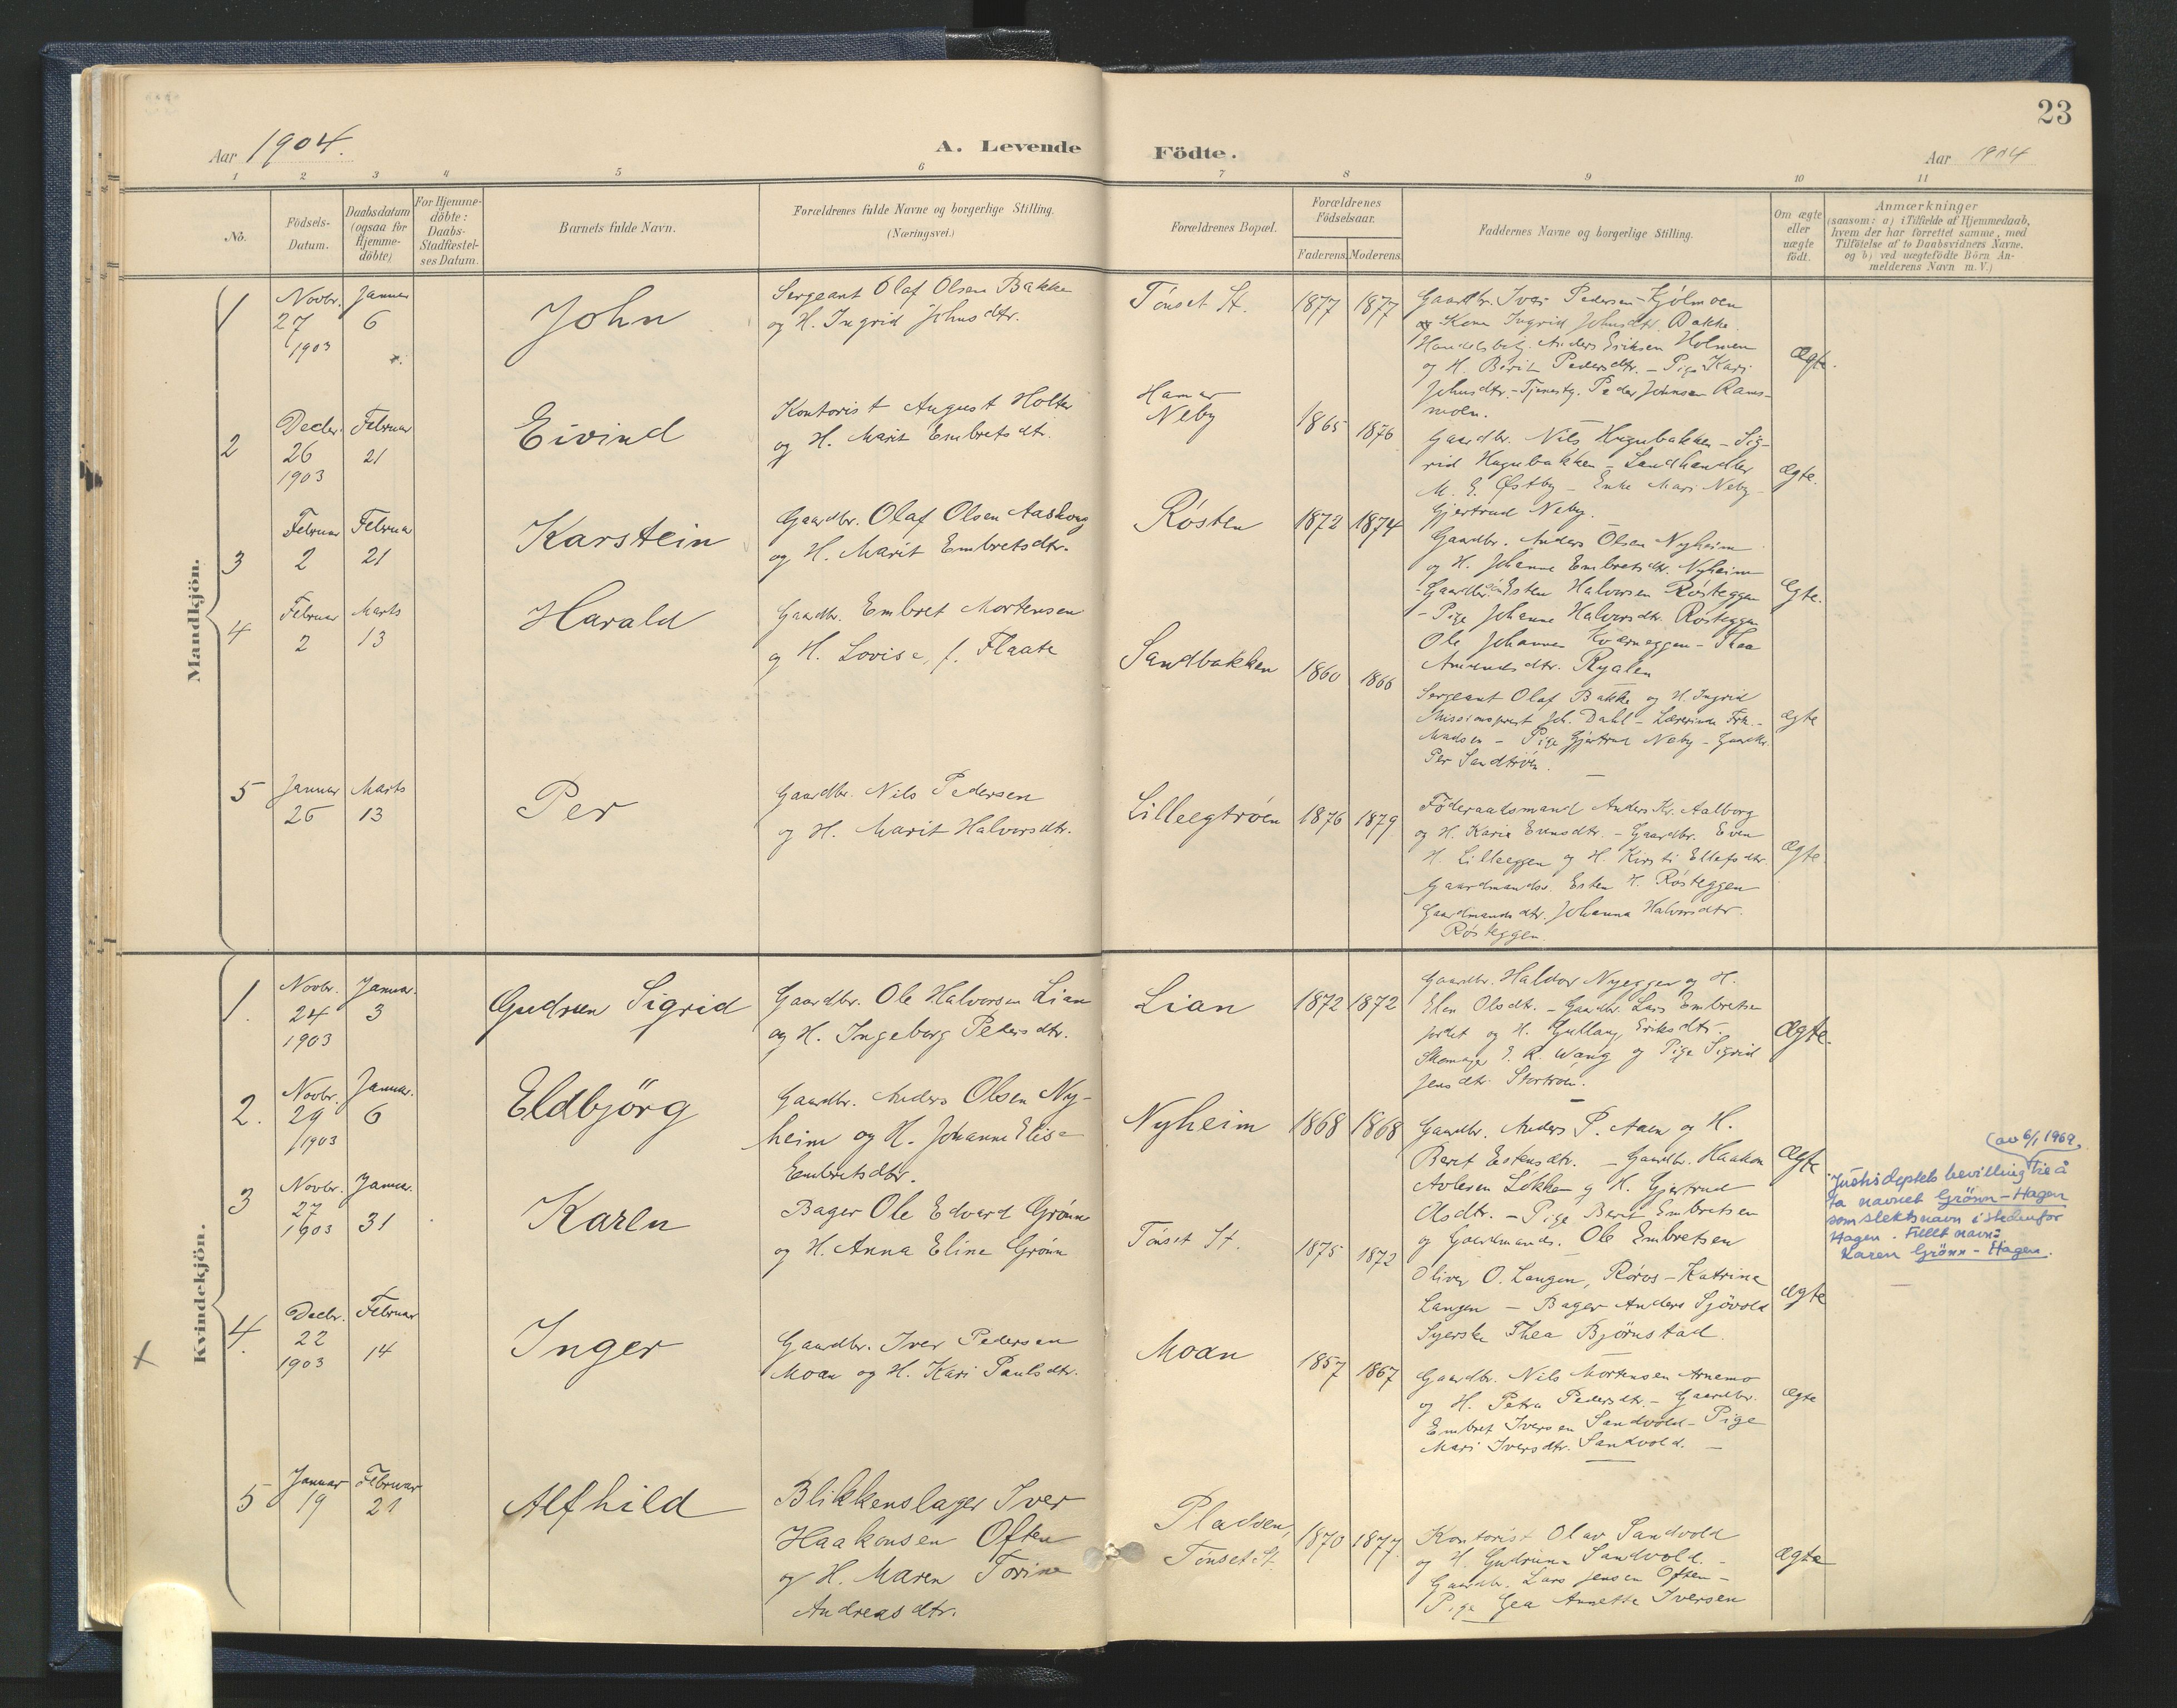 23
Aar 1904.
A. Levende Födte.
Aar 1904
1 2 3 4 5 6 7 8 9 10 11
No.
Födsels-
Datum.
Daabsdatum
(ogsaa for
Hjemme-
döbte)
For Hjemme-
döbte:
Daabs-
Stadfæstel-
ses Datum.
Barnets fulde Navn.
Forældrenes fulde Navne og borgerlige Stilling.
(Næringsvei.)
Forældrenes Bopæl.
Forældrenes
Födselsaar.
Faderens. Moderens.
Faddernes Navne og borgerlige Stilling.
Om ægte
eller
uægte
födt.
Anmærkninger
(saasom: a) i Tilfælde af Hjemmedaab,
hvem der har forrettet samme, med
Tilföielse af to Daabsvidners Navne.
og b) ved uægtefödte Börn An-
melderens Navn m. V.)
Mandkjön.
1
Novbr.
27
1903
Januar
6
John
Sergeant Olaf Olsen Bakken
og H. Ingrid Johnsdtr.
Tönset St.
1877
1877
Gaardbr. Iver Pedersen Fjölmoen
og Kone Ingrid Johnsdtr. Bakke.
Handelsbetj. Anders Eriksen Holmen
og H. Berit Pedersdtr. - Pige Kari
Johnsdtr. - Tjenestg. Peder Johnsen Rams-
moen.
Ægte.
2
Decbr.
26
1903
Februar
21
Eivind
Kontorist August Holter
og H. Marit Embretsdtr.
Hamar
Neby
1865
1876
Gaardbr. Nils Hagubakken - Sig-
rid Hagubakken - Landhandler
M. E. Østby - Enke Mari Neby -
Gjertrud Neby.
Ægte.
3
Februar
2
Februar
21
Karstein
Gaardbr. Olaf Olsen Aasborg
og H. Marit Embretsdtr.
Rösten
1872
1874
Gaardbr. Anders Olsen Nyheim
og H. Johanne Embretsdtr. Nyheim
- Gaardbr. Esten Halvorsen Rösteggen
- Pige Johanne Halvorsdtr. Rösteggen
Ole Johannes Kværneggen - Thea
Amundsdtr. Ryalen
Ægte.
4
Februar
2
Marts
13
Harald
Gaardbr. Embret Mortensen
og H. Lovise, f. Flaate
Sandbakken
1860
1866
Sergeant Olaf Bakke og H. Ingrid
Missionsprest Joh. Dahl - Lærerinde Frk.
Madsen - Pige Gjertrud Neby - Gaardbr.
Per Sandtröen.
Ægte
5
Januar
26
Marts
13
Per
Gaardbr. Nils Pedersen
og H. Marit Halvorsdtr.
Lilleegtröen
1876
1879
Föderaadsmand Anders Kr. Aalborg
og H. Karin Evensdtr. - Gaardbr. Even
H. Lilleeggen og H. Kirsti Ellefsdtr.
Gaardmands. Esten H. Rösteggen
Gaardmandsdtr. Johanna Halvorsdtr.
Rösteggen.
Ægte.
Kvindekjön.
1.
Novbr.
24
1903
Januar.
3
Gudrun Sigrid
Gaardbr. Ole Halvorsen Lian
og H. Ingeborg Pedersdtr.
Lian
1872
1872
Gaardbr. Haldor Nyeggen og H.
Elen Olsdtr. - Gaardbr. Lars Embretsen
og H. Gullaug Eriksdtr. -
Skomager E. R. Wang og Pige Sigrid
Jensdtr. Stortröen.
Ægte.
2.
Novbr.
29
1903
Januar.
6
Eldbjörg
Gaardbr. Anders Olsen Ny-
heim og H. Johanne Elise
Embretsdtr.
Nyheim
1868
1868
Gaardbr. Anders P. Aaen og H.
Beret Estensdtr. - Gaardbr. Haakon
Avlesen Løkken og H. Gjertrud
Olsdtr. - Pige Berit Embretsen
og Gaardmands. Ole Embretsen
Ægte
3
Novbr.
27
1903
Januar.
31
Karen
Bager Ole Edvard Grönn
og H. Anna Eline Grönn
Tönset St.
1875
1872
Oliver O. Langen, Röros - Katrine
Langen - Bager Anders Sjövold
Syerske Thea Björnstad.
Ægte
(av 6/1 1969.
Justisdeptets bevilling til å
ta navnet Grönn-Hagen
som slektsnavn i stedenfor
Hagen. Fullt navn:
Karen Grönn-Hagen.
X
4.
Decbr.
22
1903
Februar
14
Inger
Gaardbr. Iver Pedersen
Moan og H. Kari Paulsdtr.
Moan
1857
1867
Gaardbr. Nils Mortensen Arnemo
og H. Petra Pedersdtr. - Gaardbr.
Embret Iversen Sandvold - Pige
Mari Iversdtr. Sandvold. -
Ægte
5
Januar
19
Februar
21
Alfhild
Blikkenslager Iver
Haakonsen Often
og H. Maren Torine
Andreasdtr.
Pladsen,
Tönset St.
1870
1877
Kontorist Olav Sandvold
og H. Gudrun Sandvold. -
Gaardbr. Lars Jensen Often -
Pige Gea Annette Iversen
Ægte